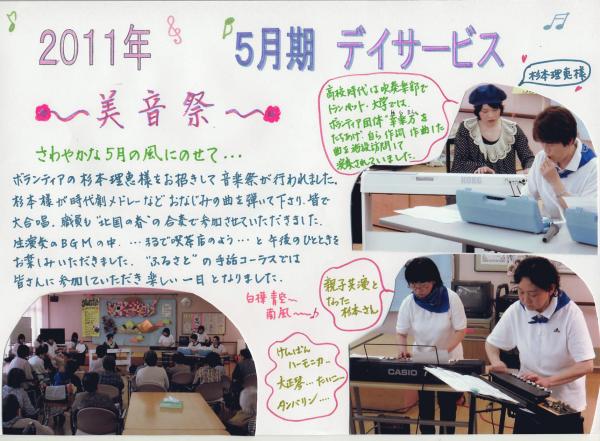 2011年 5月期 デイサービス
～美音祭～
さわやかな5月の風にのせて...
ボランティアの杉本理恵様をお招きして音楽祭が行われました。
杉本様が時代劇メドレーなどおなじみの曲を弾いて下さり、皆で
大合唱。職員も"北国の春"の合奏で参加させていただきました。
生演奏のBGMの中、...まるで喫茶店のよう...と午後のひとときを
お楽しみいただきました。"ふるさと"の手話コーラスでは
皆さんに参加していただき楽しい一日となりました。
高校時代は吹奏楽部で
トランペット、大学では、
ボランティア団体
たちあげ、自ら作詞作曲した
曲を施設訪問して
演奏されていました。
杉本理恵様
白樺青空～
南風～♪
親子共演と
なった
杉本さん
けんばん
ハーモニカ...
大正琴...たいこ...
タンバリン....
CASIO